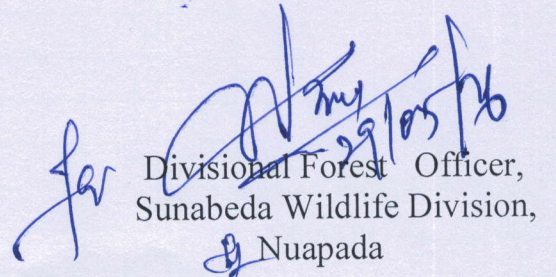 29/05/26
for Divisional Forest Officer,
Sunabeda Wildlife Division,
Nuapada